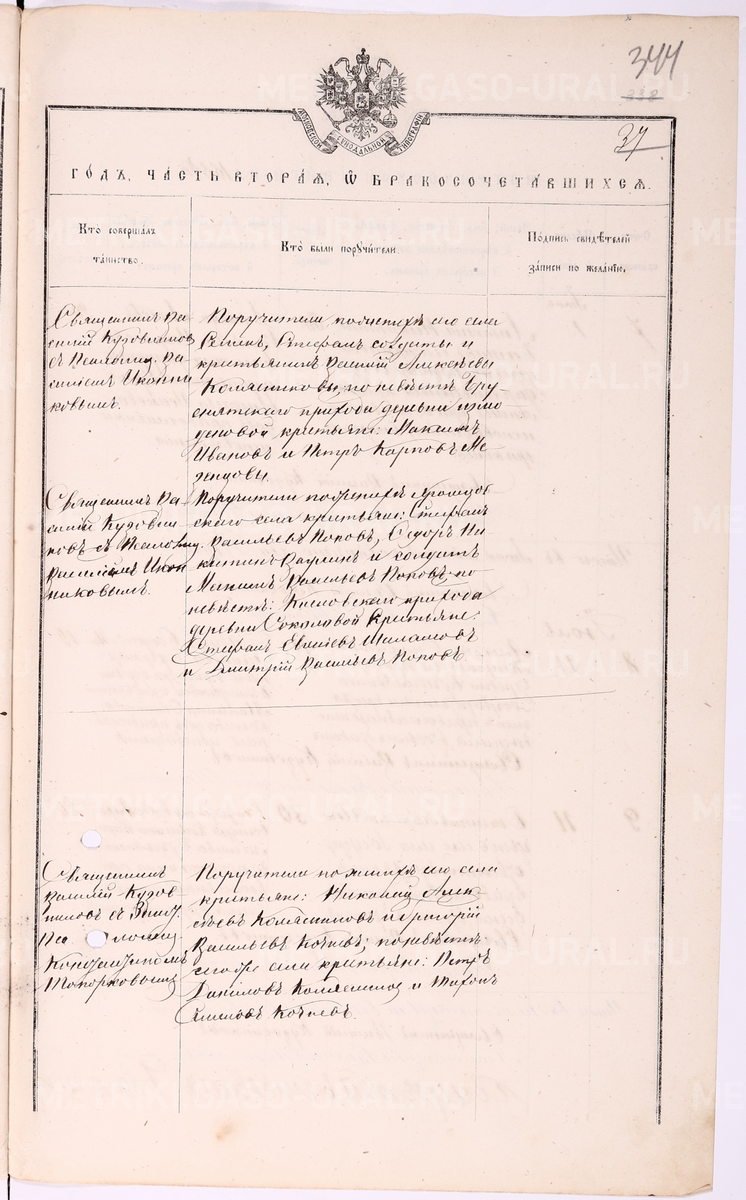 344
338
37
МОСКОВСКОЙ СѴНОДАЛЬНОЙ ТИПОГРАФІИ
ГОДЪ, ЧАСТЬ ВТОРАЯ, Ѡ БРАКОСОЧЕТАВШИХСЯ.
Кто совершалъ
таинство.
Кто были поручители.
Подпись свидѣтелей
записи по желанію.
Священникъ Ва-
силій Кудовниковъ
съ Псаломщ. Ва-
силіемъ Икони
ковымъ.
Поручители по женихѣ его села
Стефанъ солдаты и
крестьянинъ Василій Алексѣевы
Комягиновы, по невѣстѣ Бру-
снятскаго прихода деревни
крестьяне: Максимъ
Ивановъ и Петръ Карповъ Ме-
зенцовы.
Священникъ Ва-
силій Кудовни
ковъ съ Псаломщ.
Василіемъ Икон
никовымъ.
Поручители по женихѣ
скаго села крестьяне: Стефанъ
Васильевъ Поповъ, Ѳедоръ Ни
китинъ и солдатъ
Васильевъ Поповъ, по
невѣстѣ: Кисловскаго прихода
деревни Соколовой крестьяне:
Стефанъ Шаламовъ
и Дмитрій Васильевъ Поповъ
Священникъ
Василій Кудов-
никовъ съ
Пса ломщ.
Константиномъ
Топорковымъ
Поручители по женихѣ его села
крестьяне: Николай Алек
сѣевъ Комягиновъ и Григорій
Васильевъ Кочневъ; по невѣстѣ
сего же села крестьяне: Петръ
Даниловъ Комягиновъ и Тихонъ
Кочневъ.
METRIKI.GASO-URAL.RU